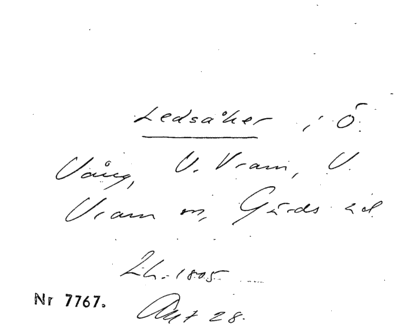 Ledsåker i Ö.
Vång, V. Vram, V.
Vram sn, Gärds hd
Lh. 1805
Nr 7767. Akt 28.